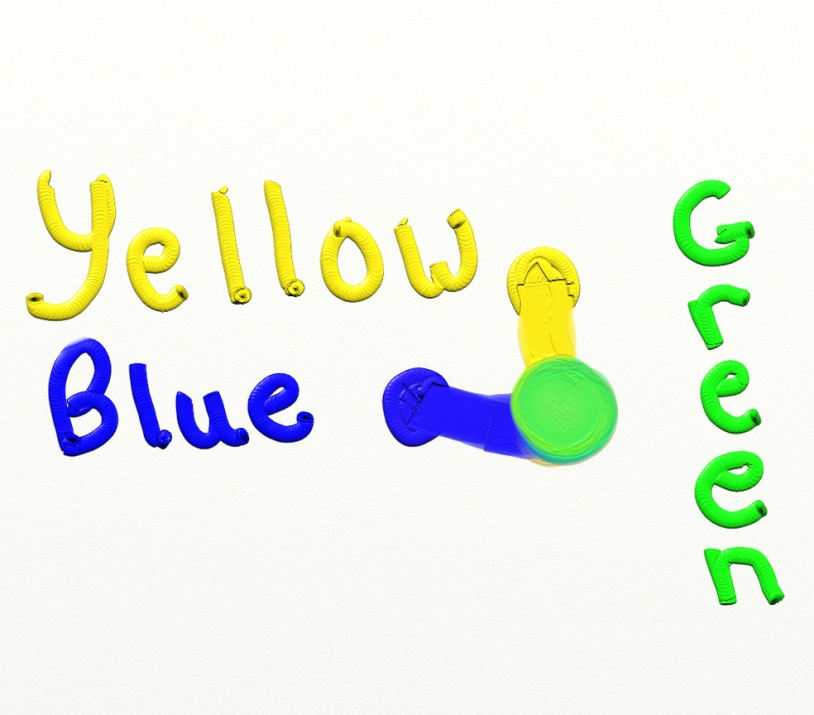 Yellow
Blue
Green